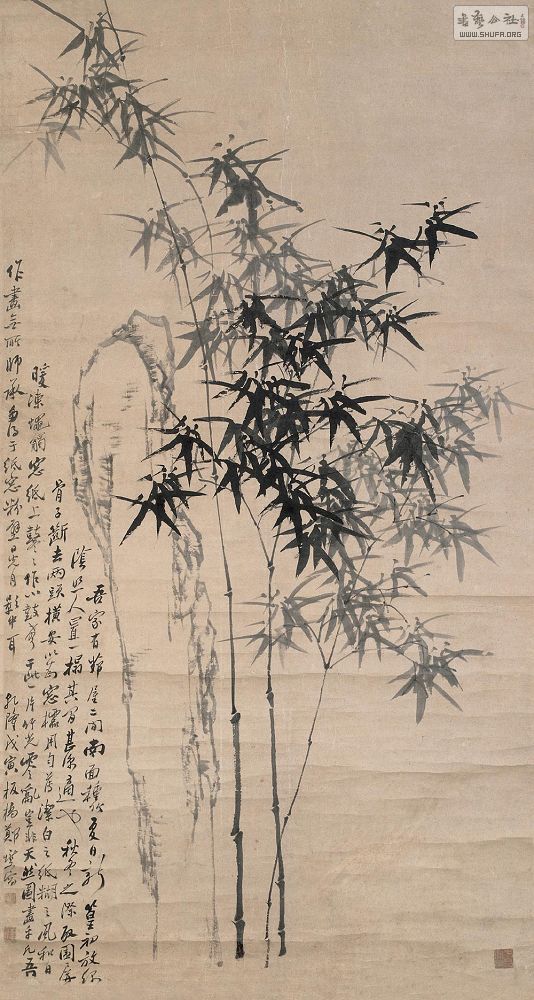 书艺公社
WWW.SHUFA.ORG
吾家有茆屋二間南面種竹夏日新篁初放綠
陰照人置一榻其中甚凉適也秋冬之際取圍屏
骨子斷去兩頭橫安以爲窓櫺用勻薄潔白之紙糊之風和日
暖凍蠅觸窓紙上鼕〻作小鼓聲于此一片竹光零亂豈非天然圖畫乎凡吾
作畫無所師承多得于紙窓粉壁日光月影中耳 乾隆戊寅板橋鄭燮